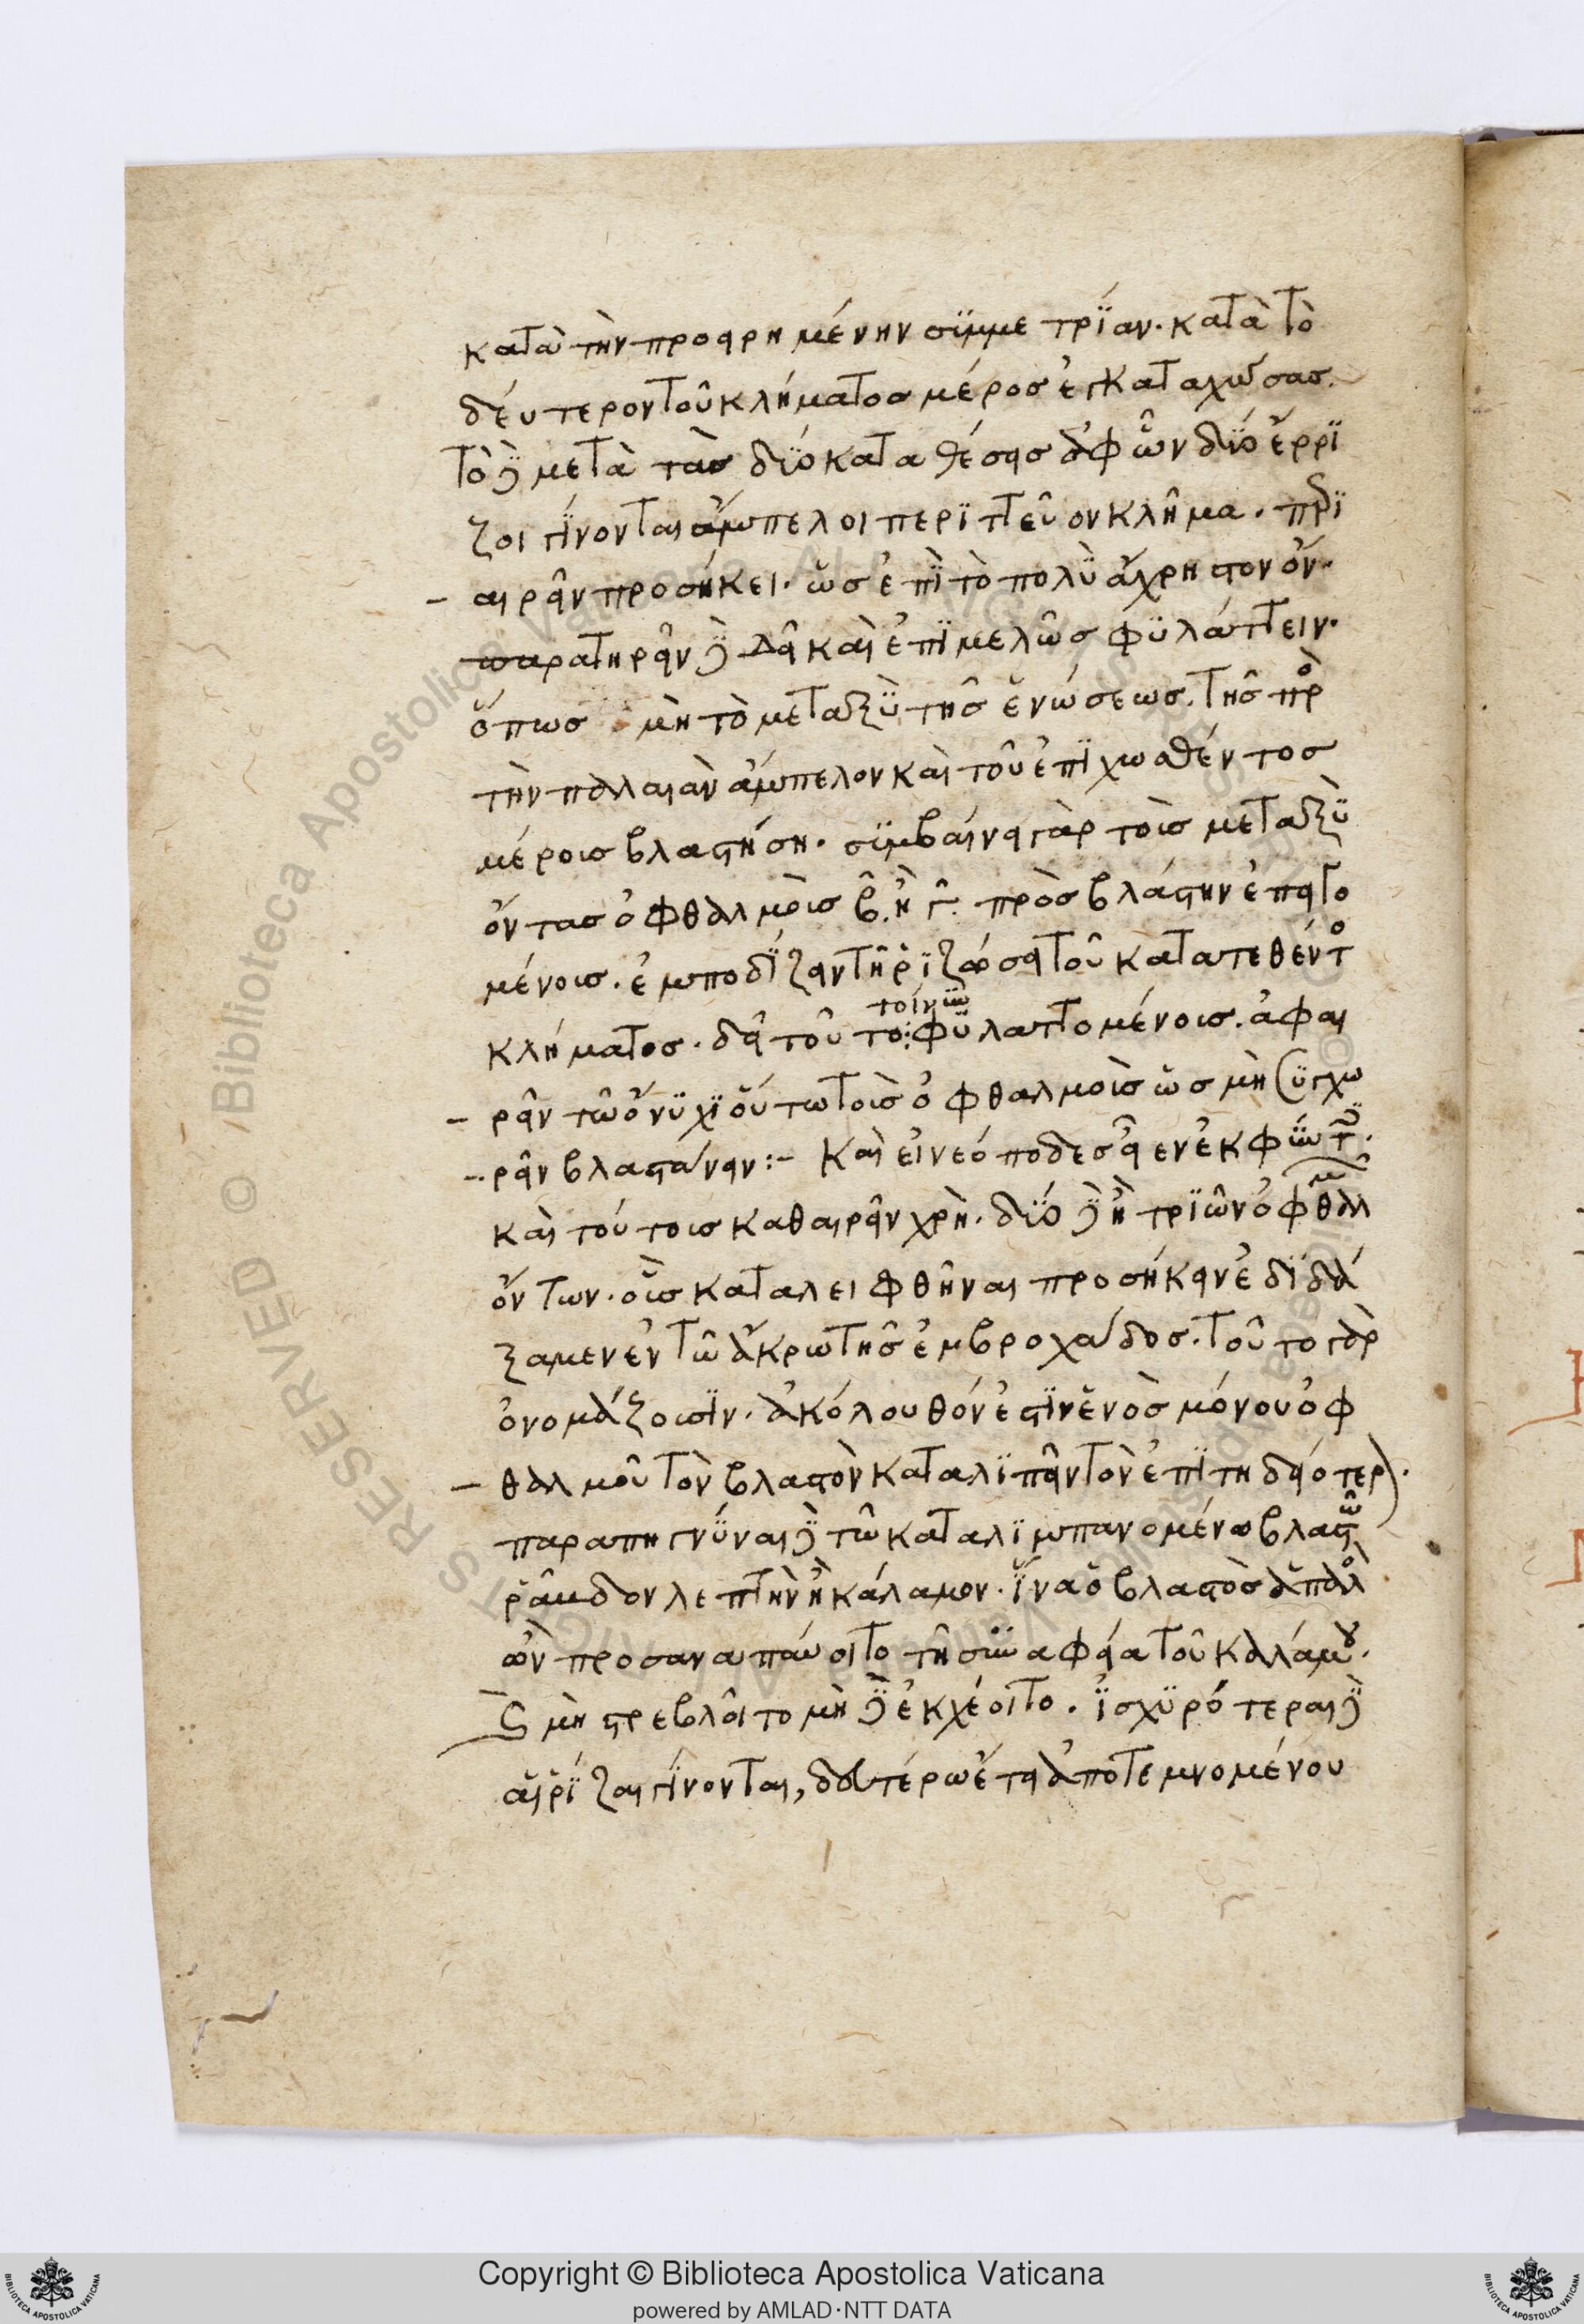 κατὰ τὴν προειρημένην σϋμμετρΐαν· κατὰ τὸ
δέυτερον τοῦ κλήματοσ μέροσ ἐγκαταχώσασ.
τὸ δὲ μετὰ τὰσ δΰο καταθέσεισ ἀφ ὧν δΰο ἔρρϊ
ζοι γΐνονται ἄμπελοι περϊττεῦον κλῆμα· πρϊ
αιρεῖν προσήκει· ὡσ ἐπῒ τὸ πολῢ ἄχρηστον ὄν·
παρατηρεῖν δὲ δεῖ καὶ ἐπϊμελῶσ φϋλάττειν·
ὅπωσ μὴ τὸ μεταξῢ τῆσ ἑνώσεωσ. τῆσ πρὸ
τὴν παλαιὰν ἄμπελον καὶ τοῦ ἐπϊχωσθέντοσ
μέρουσ βλαστήση· σϋμβαίνει γὰρ τοὺσ μεταξῢ
ὄντασ ὀφθαλμοὺσ β ἢ γ πρὸσ βλάστην ἐπειγο
μένουσ. ἐμποδΐζειν τῆ ῥϊζώσει τοῦ κατατεθέντο
κλήματοσ. δεῖ τοὺ τοίνυν φϋλαττομένουσ. ἀφαι
ρεῖν τῶ ὄνϋχϊ οὕτω τοὺσ ὀφθαλμοὺσ ὡσ μὴ συγχω
ρεῖν βλαστάνειν:- Καὶ εἰ νεόποδεσ εἶεν ἐκ φυτῶν.
καὶ τούτουσ καθαιρεῖν χρὴ. δΰο δὲ ἢ τρϊῶν ὀφθαλμῶν
ὄντων. οὓσ καταλειφθῆναι προσήκειν ἐδϊδά
ξαμεν ἐν τῶ ἄκρω τῆσ ἐμβροχάδοσ. τοῦτο γὰρ
ὀνομάζουσϊν. ἀκόλουθόν ἐστϊν ἑνὸσ μόνου ὀφ
θαλμοῦ τὸν βλαστὸν καταλϊπεῖν τὸν ἐπϊτηδειότερον.
παραπηγνΰναι δὲ τῶ καταλϊμπανομένω βλαστῶ
ῥάβδον λεπτὴν ἢ κάλαμον. ἵνα ὁ βλαστὸσ ἁπαλὸσ
ὢν προσαναπαύοιτο τῆ σϋναφεία τοῦ καλάμου.
καὶ μὴ στρεβλοῖτο μὴ δὲ ἐκχέοιτο. ϊσχϋρότεραι δὲ
αἱ ῥΐζαι γΐνονται, δευτέρω ἔτει ἀποτεμνομένου
Copyright © Biblioteca Apostolica Vaticana
powered by AMLAD·NTT DATA